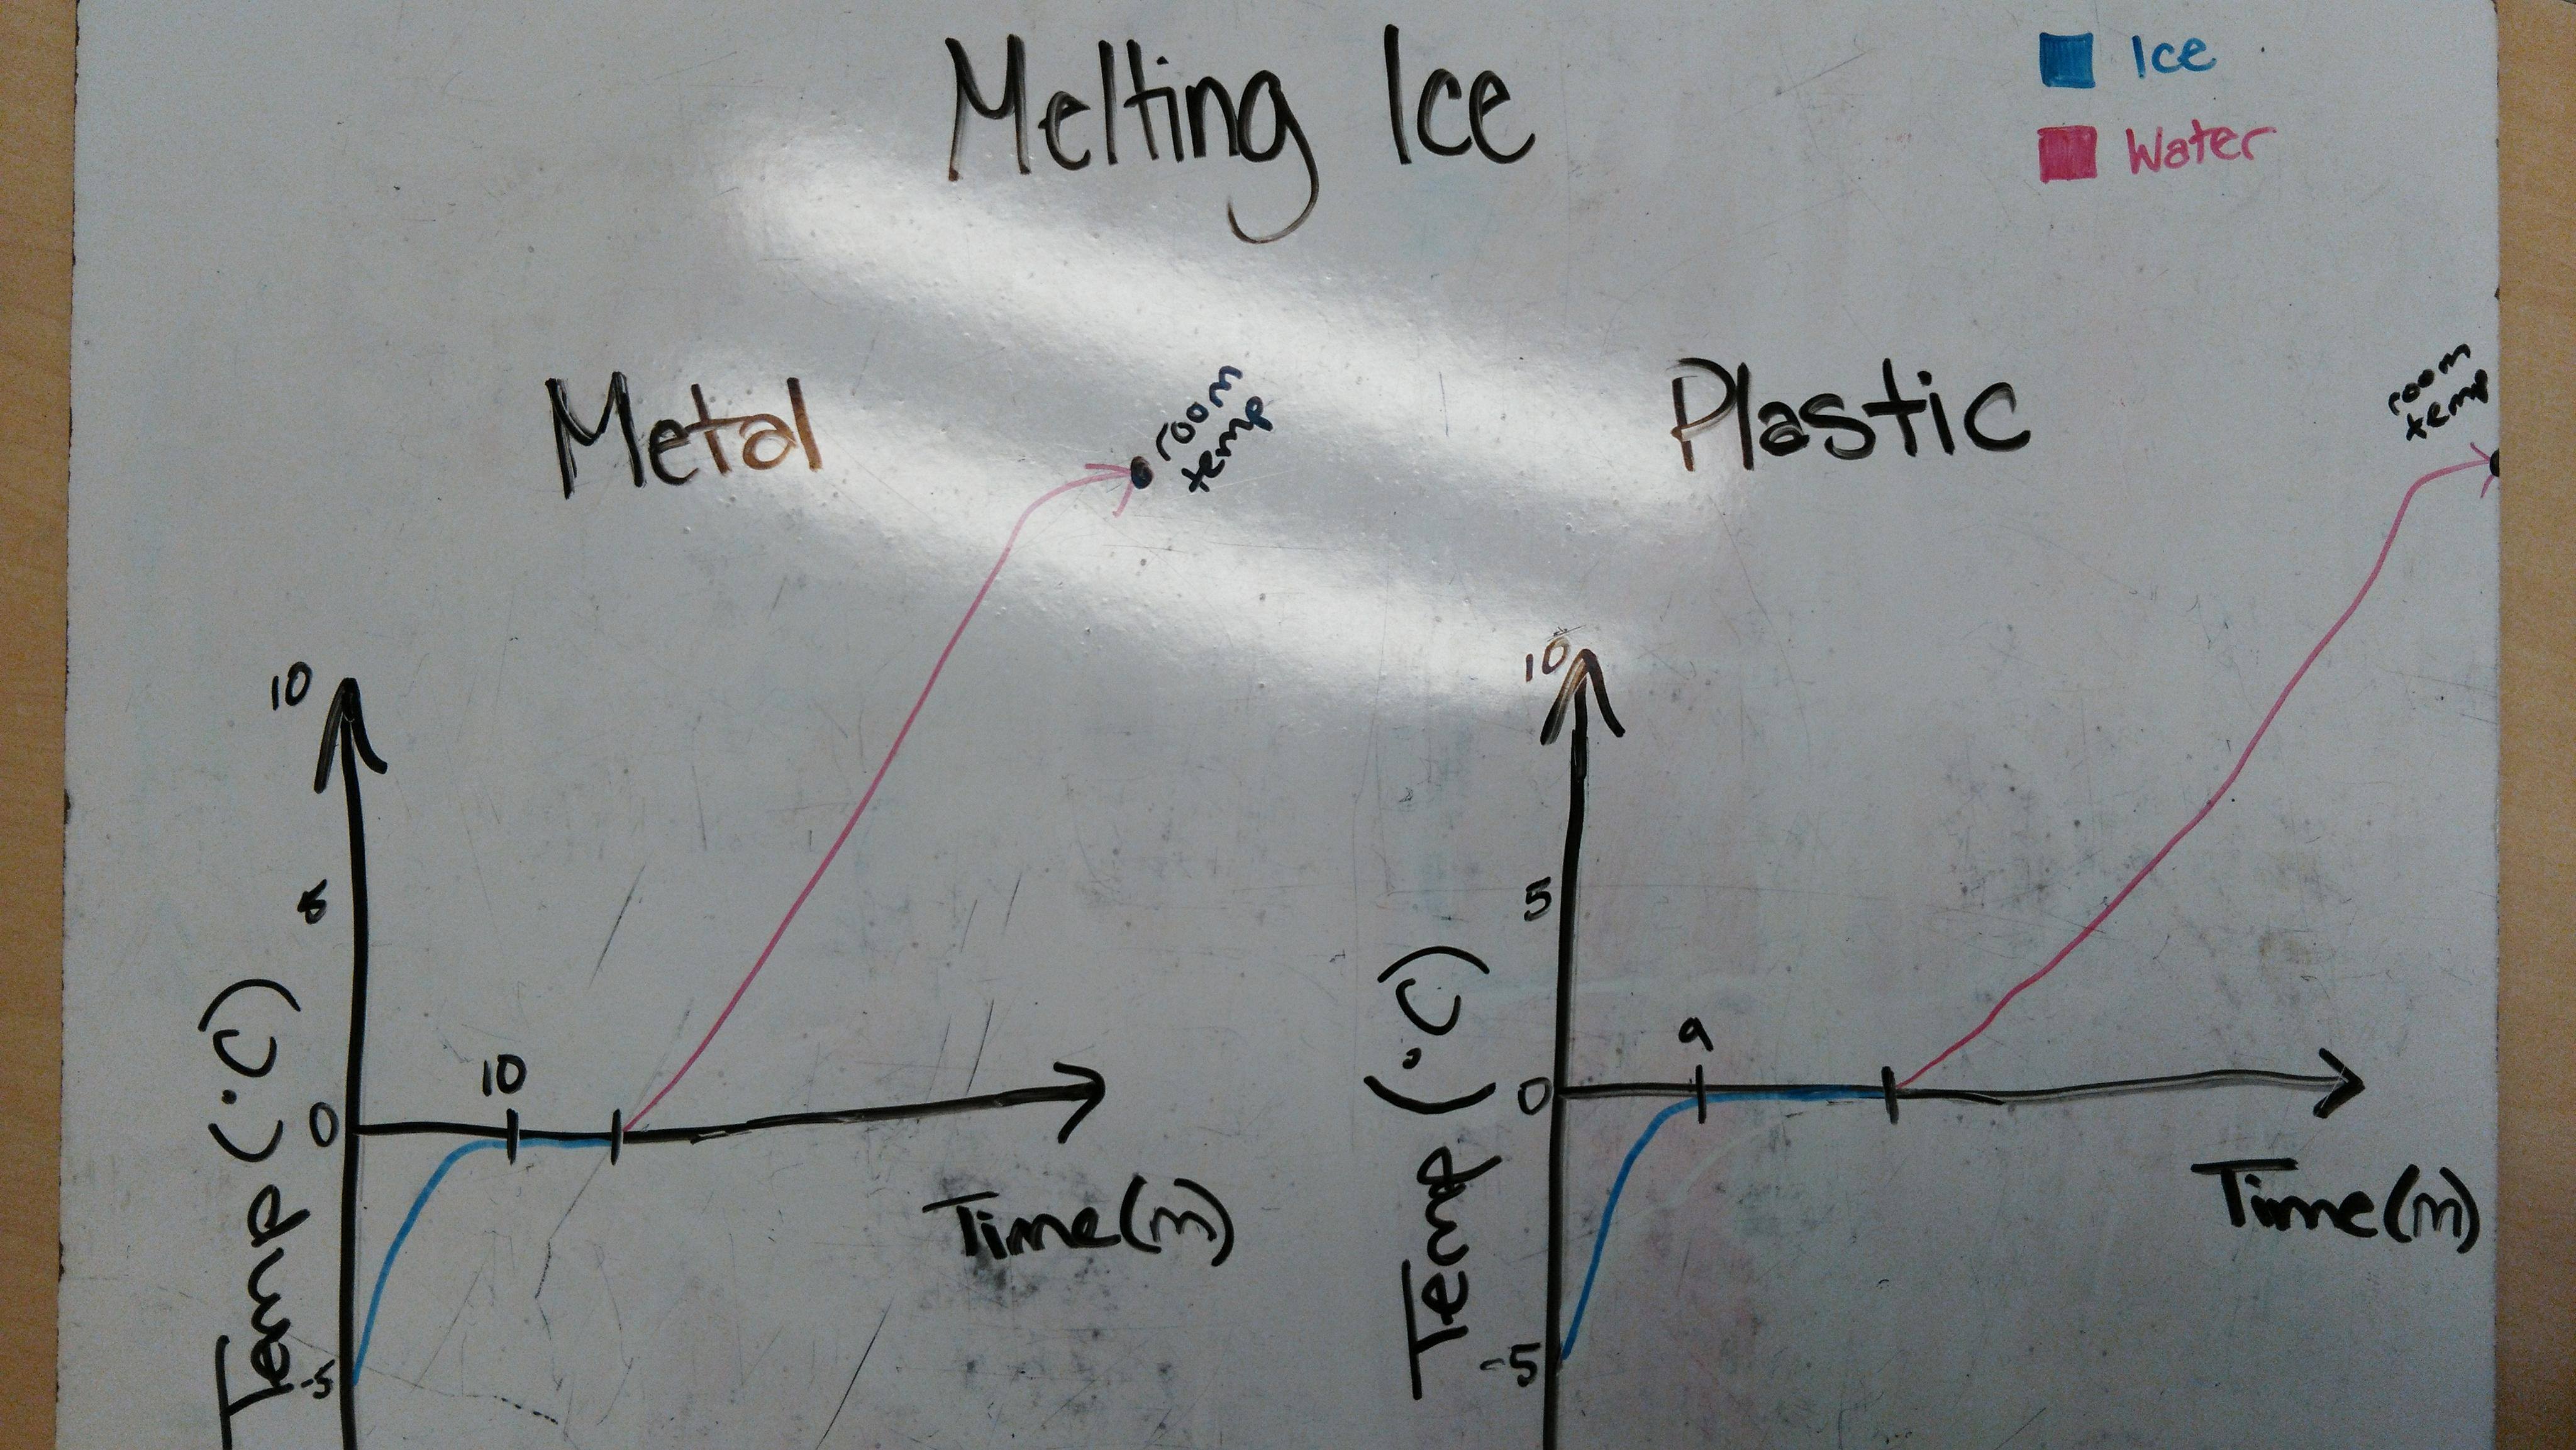 Melting Ice
Ice
Water
Metal
room
temp
10
5
0
-5
10
Temp (°C)
Time (m)
Plastic
room
temp
10
5
0
-5
9
Temp (°C)
Time (m)